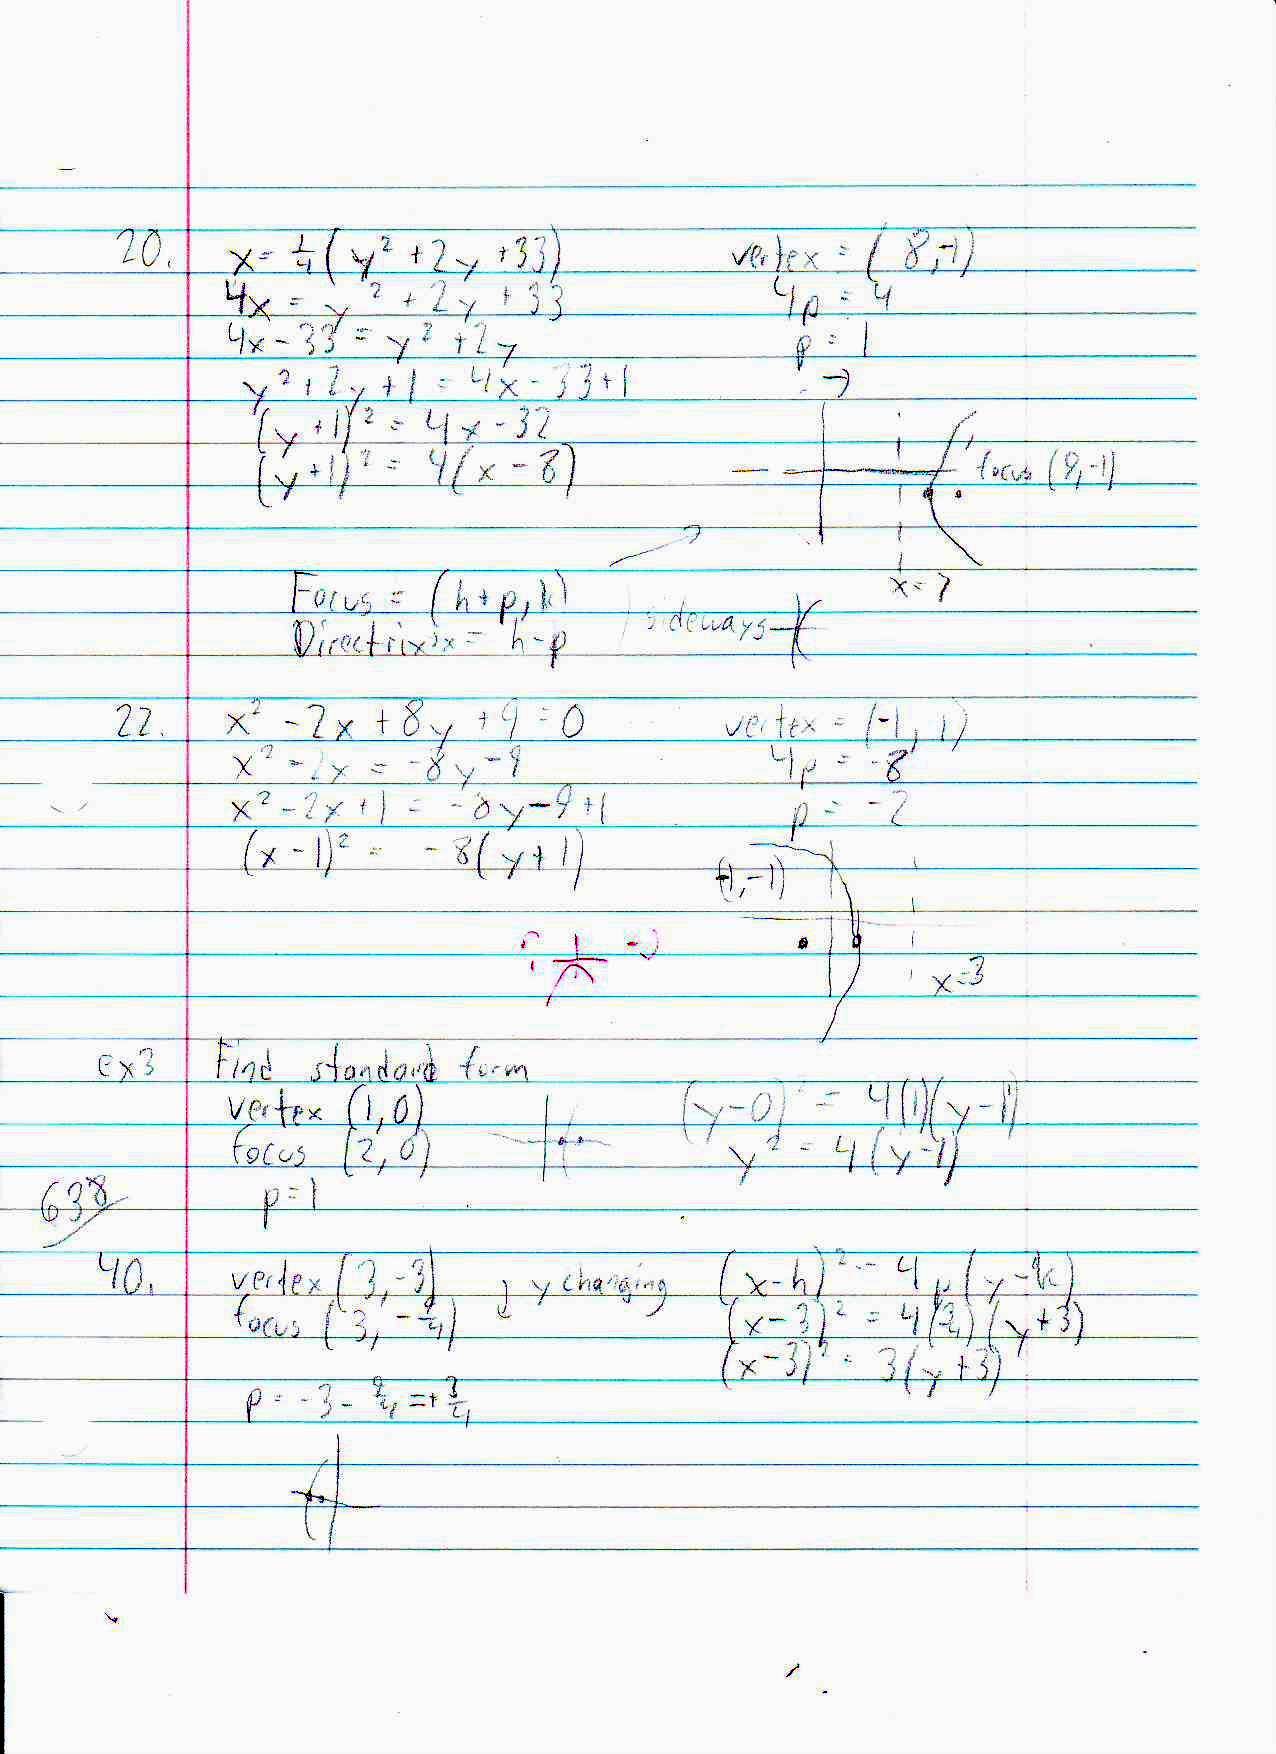 20. x = 1/4 (y² + 2y + 33) vertex = (8, -1)
4x = y² + 2y + 33 4p = 4
4x - 33 = y² + 2y p = 1
y² + 2y + 1 = 4x - 33 + 1
(y + 1)² = 4x - 32
(y + 1)² = 4(x - 8) focus (9, -1)
x = 7
Focus = (h + p, k)
Directrix: x = h - p sideways
22. x² - 2x + 8y + 9 = 0 vertex = (-1, 1)
x² - 2x = -8y - 9 4p = -8
x² - 2x + 1 = -8y - 9 + 1 p = -2
(x - 1)² = -8(y + 1)
(-1, -1)
x = 3
ex3 Find standard form
vertex (1, 0) (y - 0)² = 4(1)(y - 1)
focus (2, 0) y² = 4(y - 1)
p = 1
638
40. vertex (3, -3) y changing (x - h)² = 4p(y - k)
focus (3, -9/4) (x - 3)² = 4(3/4)(y + 3)
(x - 3)² = 3(y + 3)
p = -3 - 9/4 = + 3/4